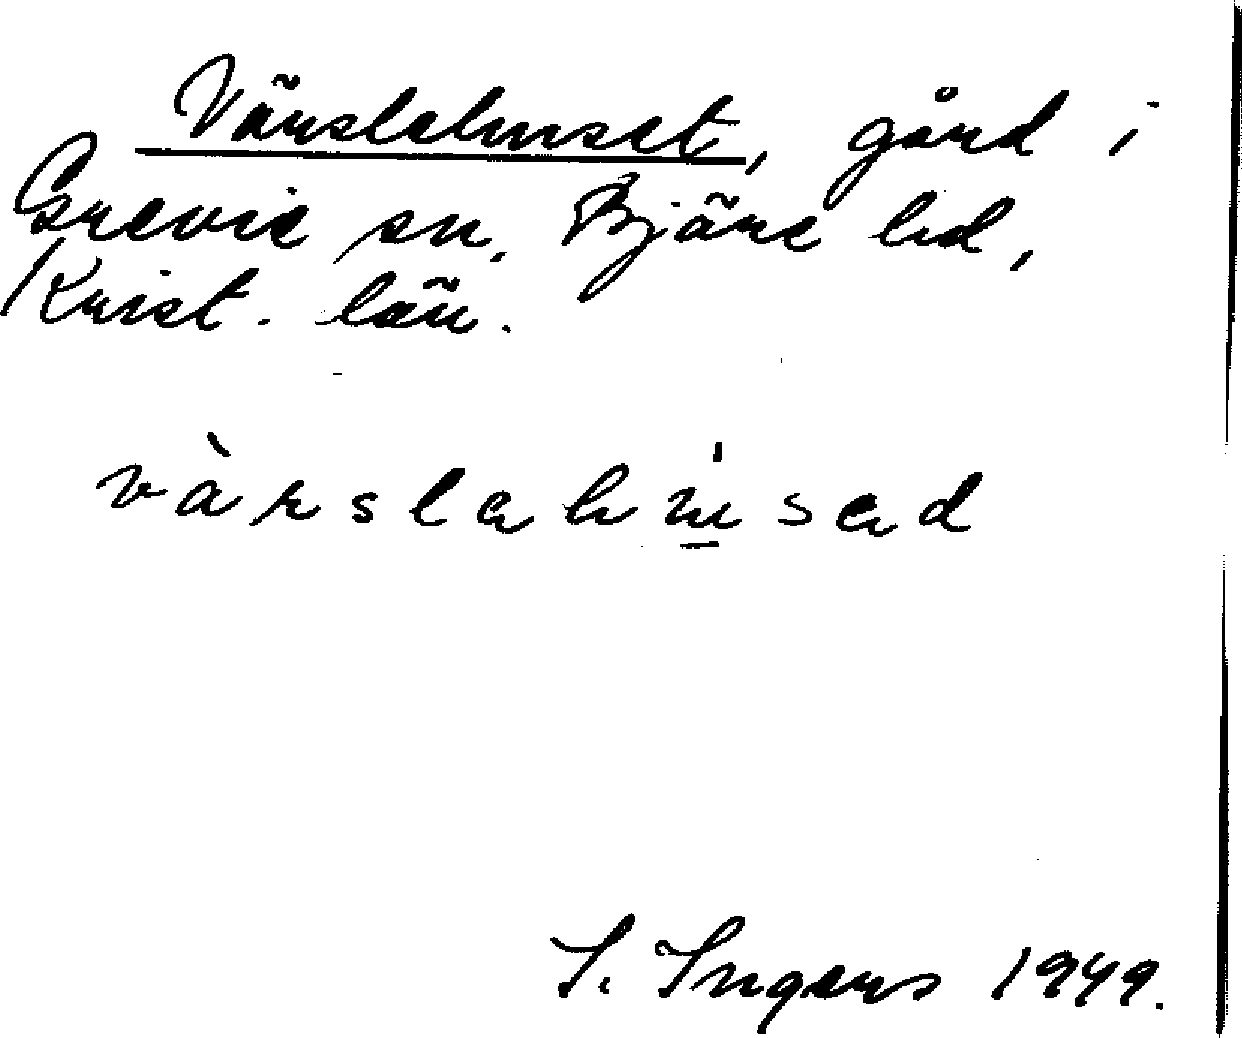 Värslehuset, gård i
Grevie sn, Bjäre hd,
Krist. län.
vàrslahu̲sad
I. Ingers 1949.